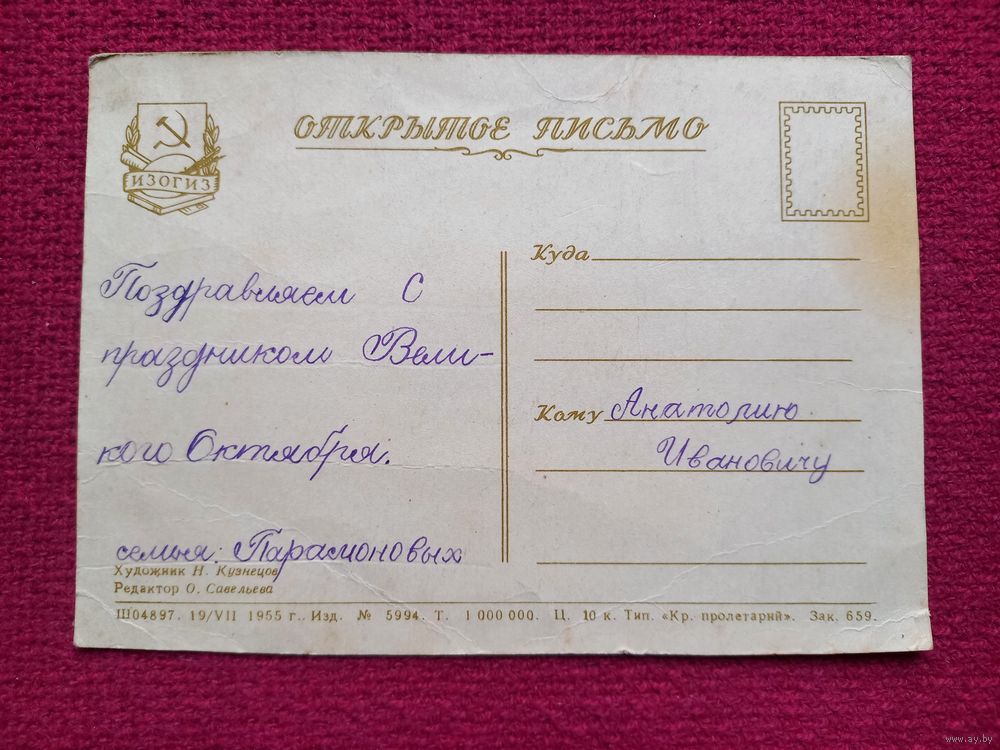 ОТКРЫТОЕ ПИСЬМО
ИЗОГИЗ
Поздравляем С
праздником Вели-
кого Октября.
семья: Парамоновых
Куда
Кому Анатолию
Ивановичу
Художник Н. Кузнецов
Редактор О. Савельева
Ш04897. 19/VII 1955 г. Изд. № 5994. Т. 1 000 000. Ц. 10 к. Тип. «Кр. пролетарий». Зак. 659.
www.ay.by